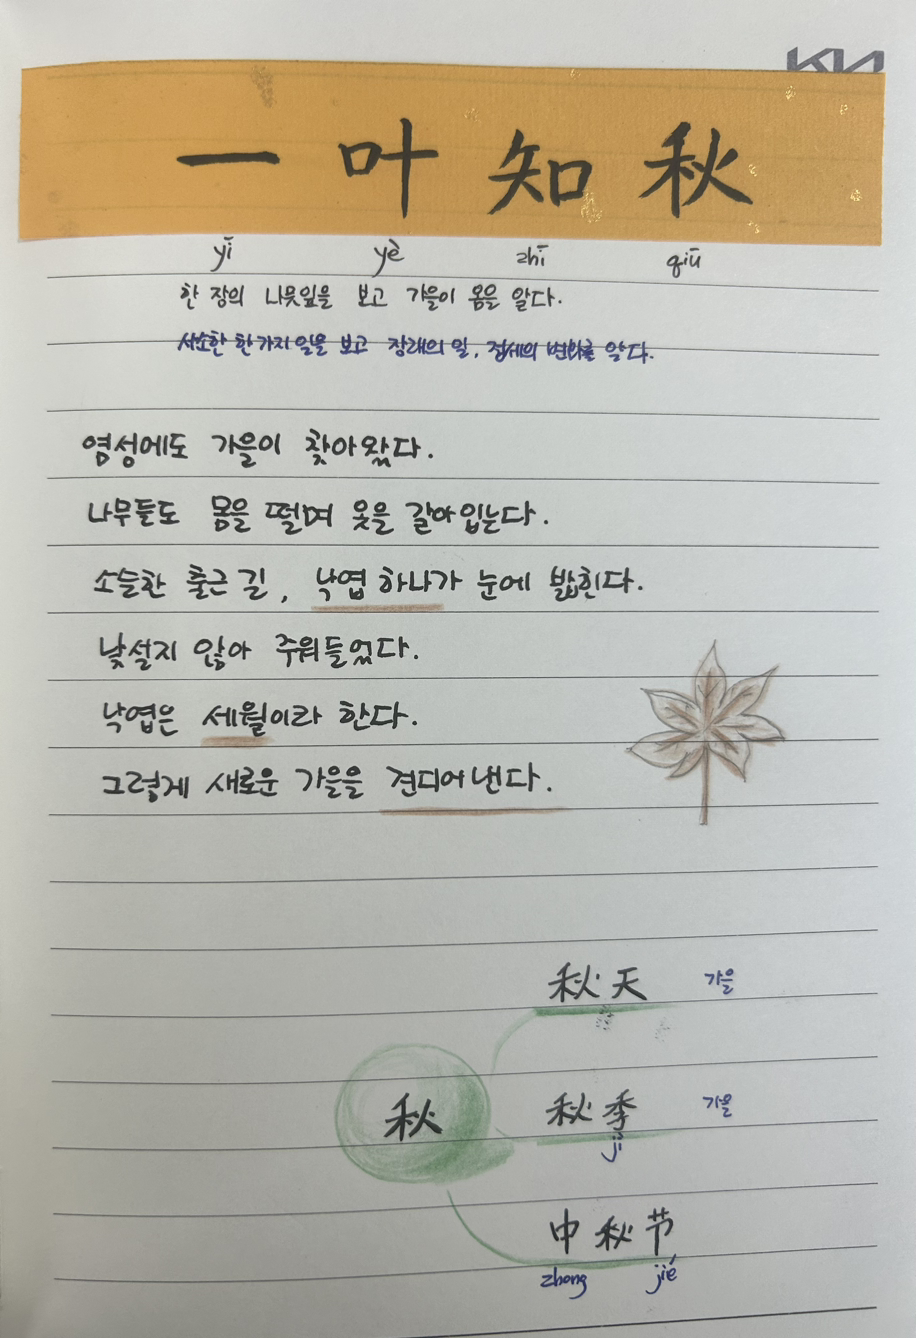 KIA
一 叶 知 秋
yī yè zhī qiū
한 장의 나뭇잎을 보고 가을이 옴을 알다.
사소한 한가지 일을 보고 장래의 일, 정세의 변화를 알다.
염성에도 가을이 찾아왔다.
나무들도 몸을 떨며 옷을 갈아입는다.
소슬한 출근길, 낙엽 하나가 눈에 밟힌다.
낯설지 않아 주워들었다.
낙엽은 세월이라 한다.
그렇게 새로운 가을을 견디어 낸다.
秋天 가을
秋
秋季 가을
jì
中秋节
zhong jié